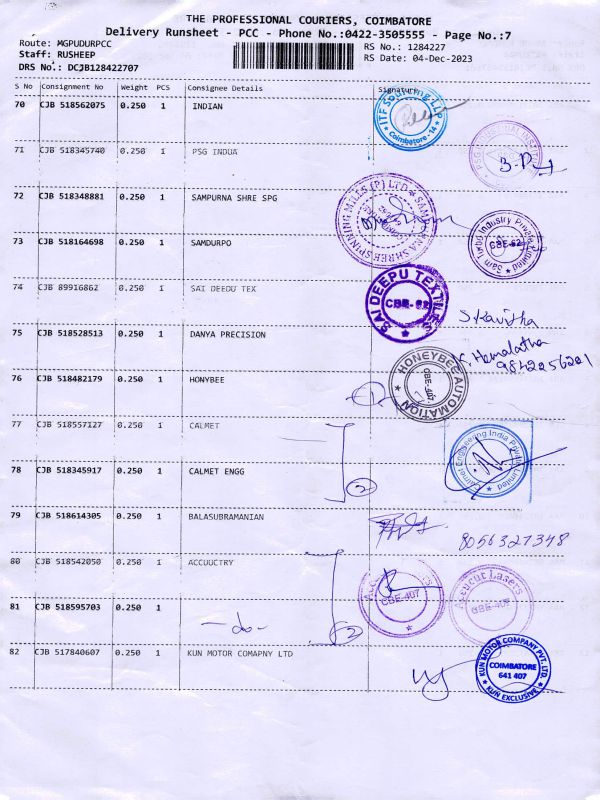 THE PROFESSIONAL COURIERS, COIMBATORE
Delivery Runsheet - PCC - Phone No.:0422-3505555 - Page No.:7
Route: MGPUDURPCC RS No.: 1284227
Staff: RUSHEEP RS Date: 04-Dec-2023
DRS No.: DCJB128422707
S No Consignment No Weight PCS Consignee Details Signature
70 CJB 518562075 0.250 1 INDIAN
ITF Sourcing LLP Coimbatore-14
71 CJB 518345740 0.250 1 PSG INDUA
72 CJB 518348881 0.250 1 SAMPURNA SHRE SPG
73 CJB 518164698 0.250 1 SAMDURPO
CBE-62
74 CJB 89916862 0.250 1 SAI DEEDU TEX
SAI DEEPU TEXTILES
CBE-62
S. Kavitha
75 CJB 518528513 0.250 1 DANYA PRECISION
Hemalatha
9842256221
76 CJB 518482179 0.250 1 HONYBEE
①
HONEYBEE AUTOMATION
CBE-407.
77 CJB 518557127 0.250 1 CALMET
Calmet Engineering India Private Limited
78 CJB 518345917 0.250 1 CALMET ENGG
②
79 CJB 518614305 0.250 1 BALASUBRAMANIAN
8056327348
80 CJB 518542050 0.250 1 ACCUUCTRY
CBE-407
Accucut Lasers
CBE-407
81 CJB 518595703 0.250 1
-do-
②
82 CJB 517840607 0.250 1 KUN MOTOR COMAPNY LTD
KUN MOTOR COMPANY PVT. LTD.
COIMBATORE
641 407
KUN EXCLUSIVE